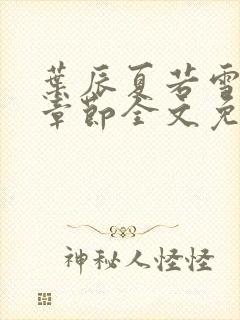 葉辰夏若雪
章節全文免
神秘人怪怪